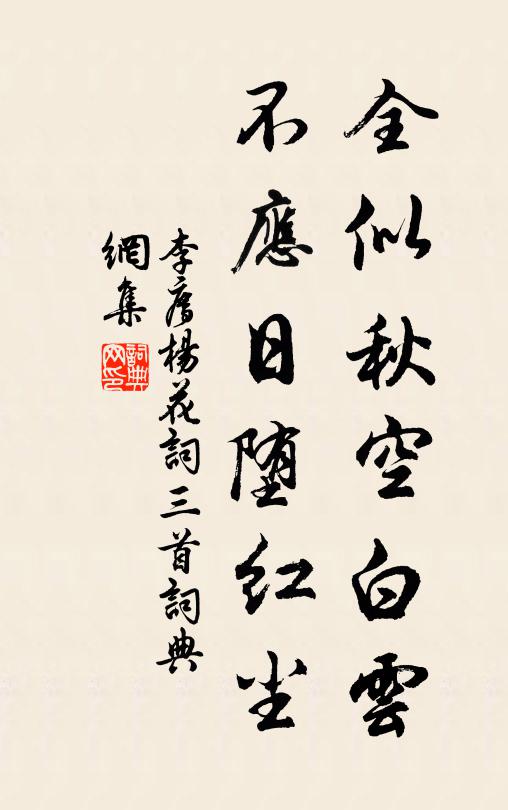 全似秋空白雲
不應日堕紅尘
李廌楊花詞三首詞典
網集
詞典
网印